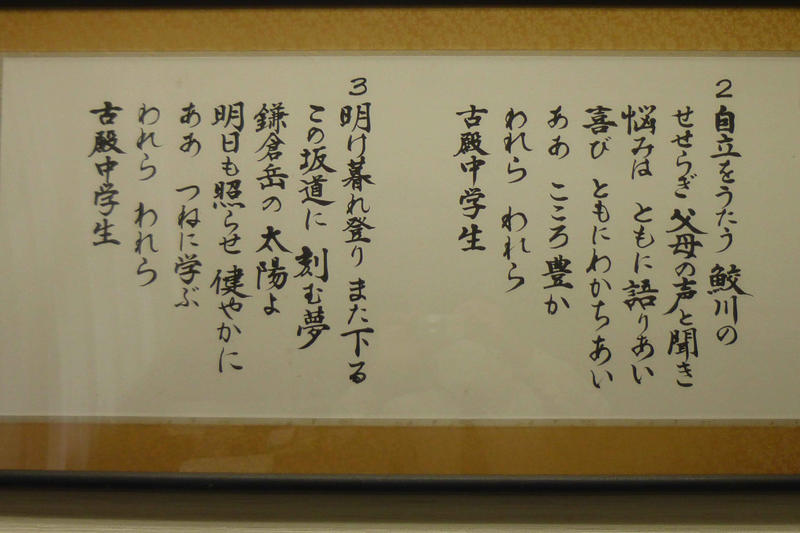 2 自立をうたう 鮫川の
せせらぎ 父母の声と聞き
悩みは ともに語りあい
喜び ともにわかちあい
ああ こころ豊か
われら われら
古殿中学生
3 明け暮れ登り また下る
この坂道に 刻む夢
鎌倉岳の 太陽よ
明日も照らせ 健やかに
ああ つねに学ぶ
われら われら
古殿中学生